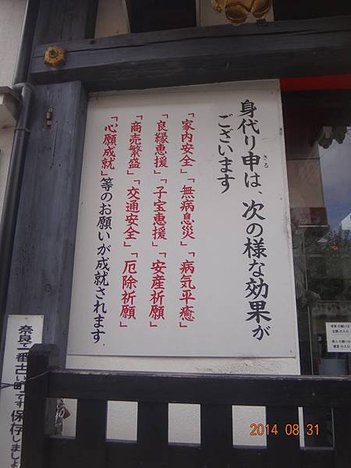 身代り申は、次の様な効果が
ございます
「家内安全」「無病息災」「病気平癒」
「良縁恵援」「子宝恵援」「安産祈願」
「商売繁盛」「交通安全」「厄除祈願」
「心願成就」等のお願いが成就されます。
奈良で一番古い町です保存しましょ
2014 08 31